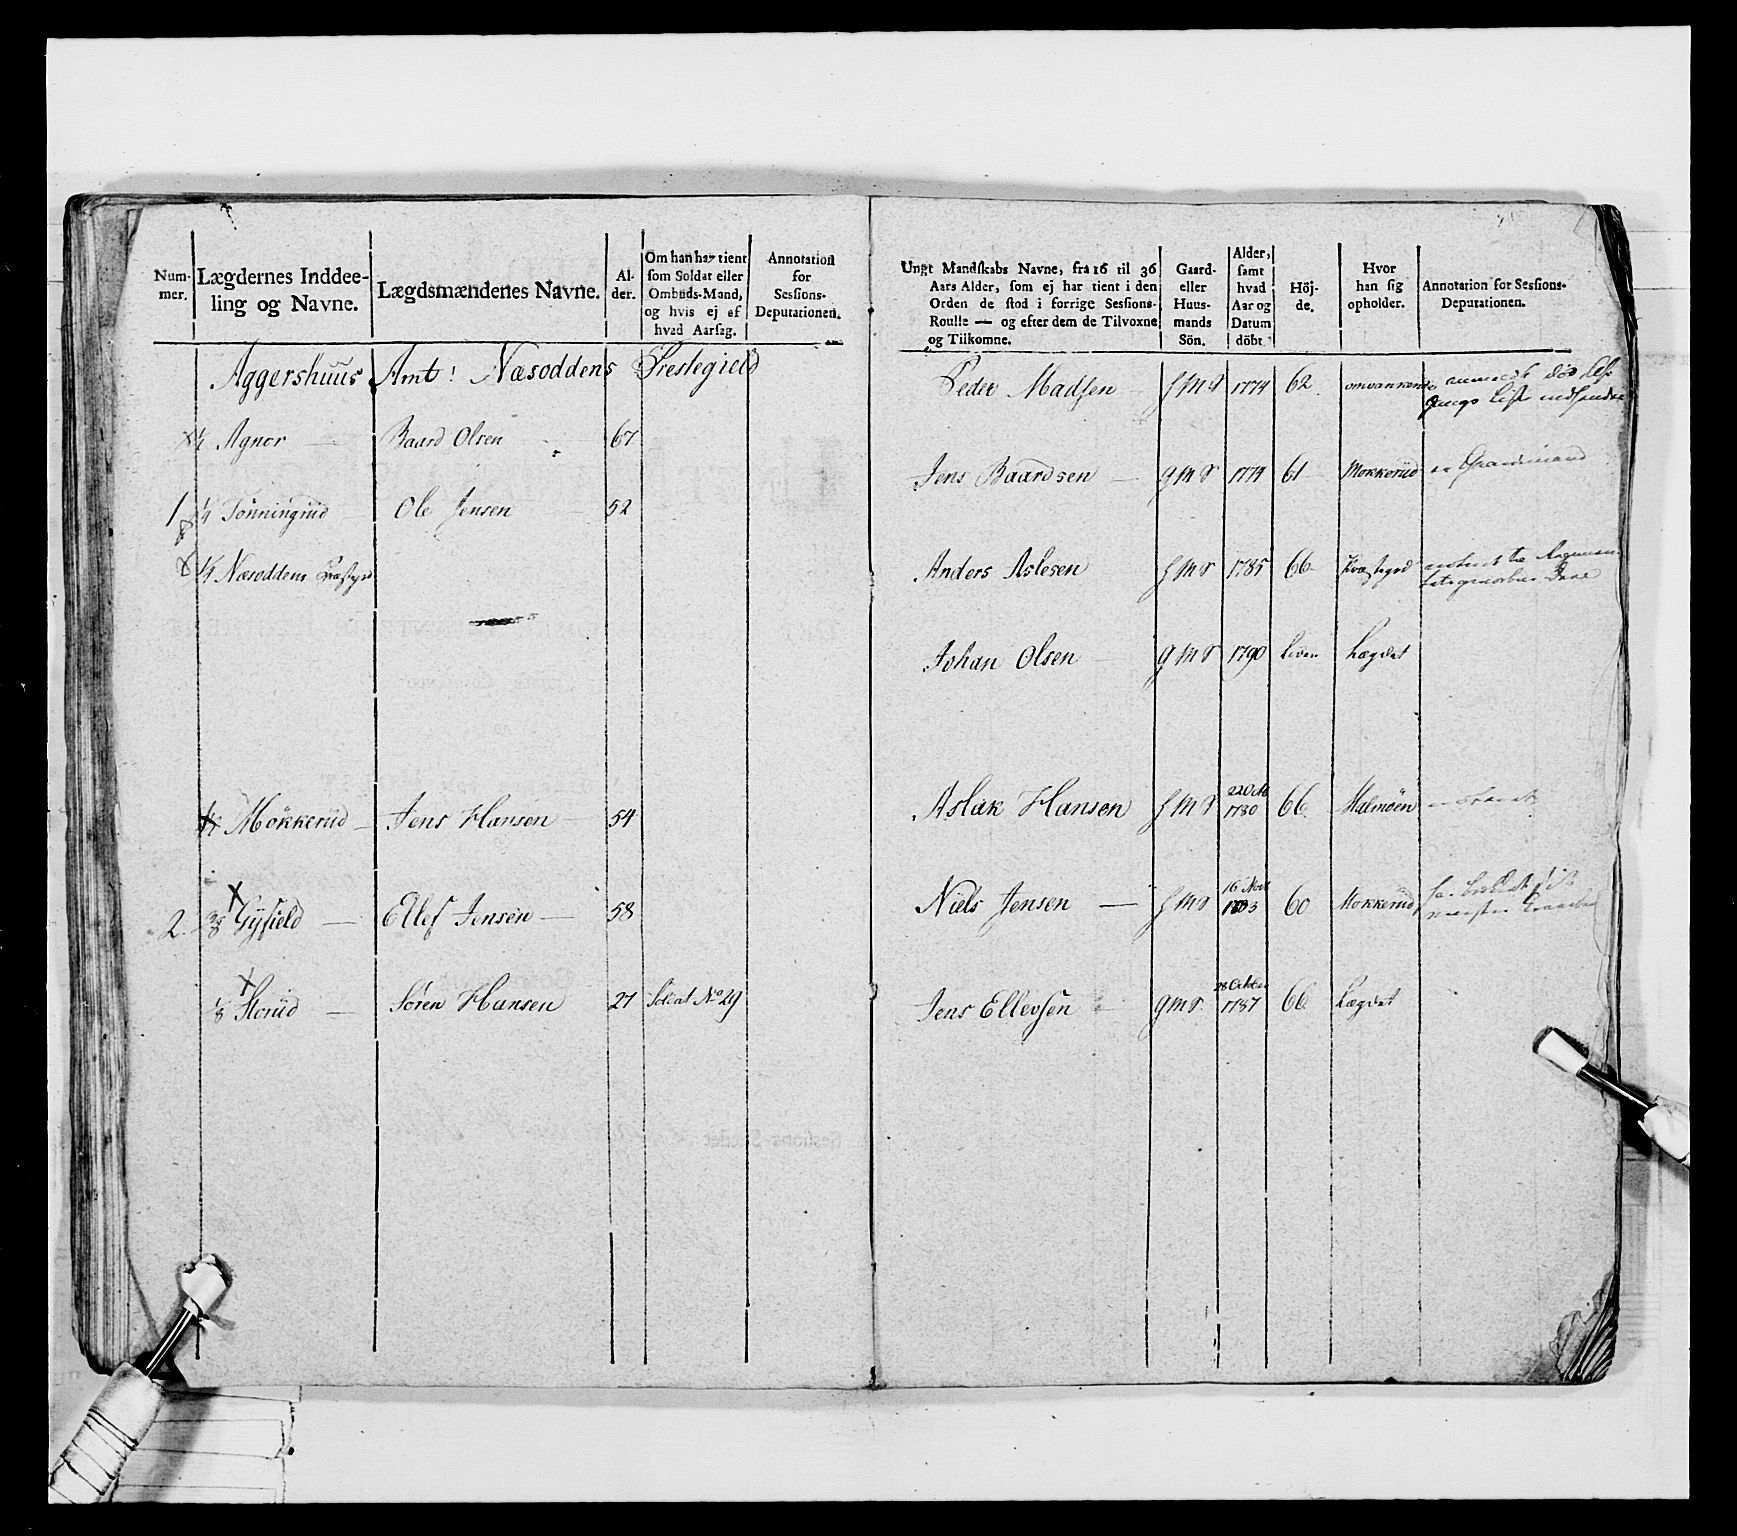 Num-
mer.
Lægdernes Inddee-
ling og Navne.
Lægdsmændenes Navne.
Al-
der.
Om han har tient
som Soldat eller
Ombuds-Mand,
og hvis ej af
hvad Aarsag.
Annotation
for
Sessions-
Deputationen.
Aggershuus Amt: Næsoddens Prestegield
1/4 Agnor — Baard Olsen 67
1 1/4 Tönningrud Ole Jensen 52
1/4 Næsoddens
1/4 Mökkerüd — Jens Hansen — 54
2. 3/8 Gÿsield — Ellef Jensen — 58
1/8 Storüd — Sören Hansen 27 Soldat No 29
Ungt Mandskabs Navne, fra 16 til 36
Aars Alder, som ej har tient i den
Orden de stod i forrige Sessions-
Roulle — og efter dem de Tilvoxne
og Tilkomne.
Gaard-
eller
Huus-
mands
Sön.
Alder,
samt
hvad
Aar og
Datum
döbt
Höj-
de.
Hvor
han sig
opholder.
Annotation for Sessions-
Deputationen.
Peder Madsen h m s 1774 62
Jens Baardsen — g m s 1774 61 Mokkerüd
Anders Aslesen h m s 1785 66
Johan Olsen — g m s 1790 Liden Lægdet
Aslak Hansen h m s 22 Oct 1780 66 Malmöen
Niels Jensen — h m s 16 1783 60 Mokkerüd
Jens Ellevsen g m s. 28 October 1787 66 Lægdet